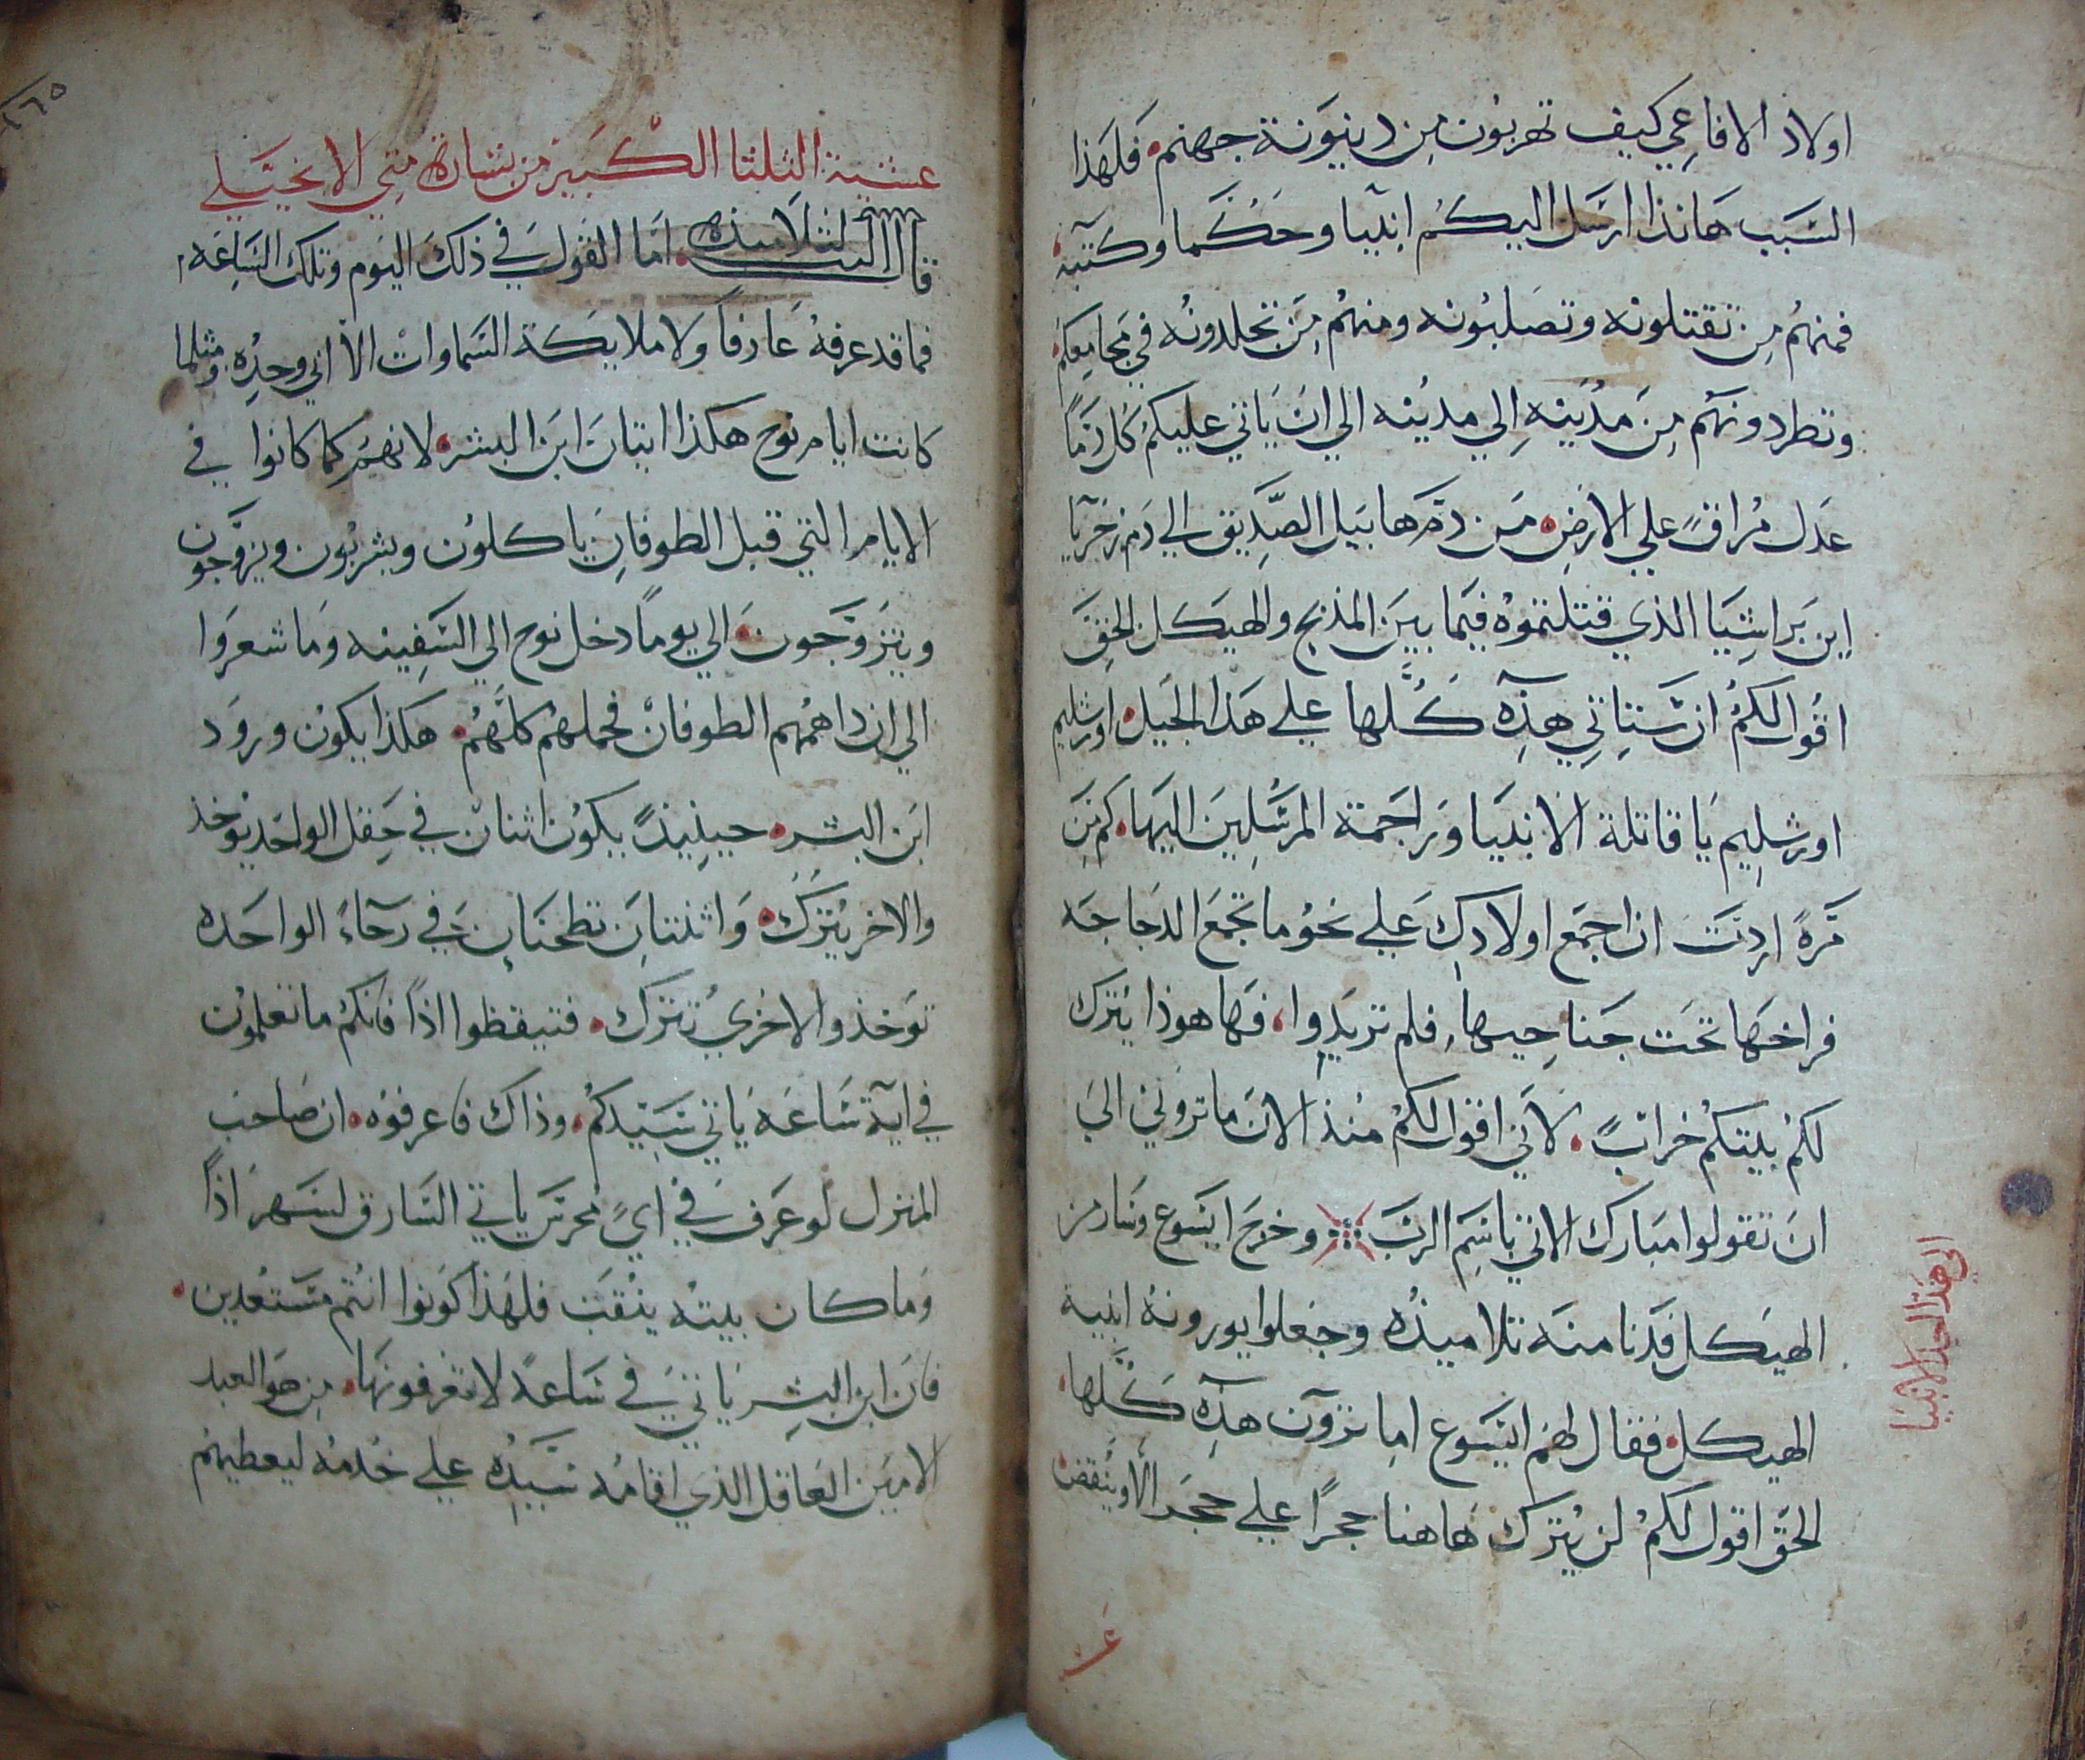 اولاد الافاعي كيف تهربون من دينونة جهنم. فلهذا
السبب هانذا ارسل اليكم انبيا وحكما وكتبه
فمنهم من تقتلونه وتصلبونه ومنهم من تجلدونه في مجامعكم
وتطردونهم من مدينه الي مدينه الي ان ياتي عليكم كل دمًا
عدل مراقٍ علي الارض. من دم هابيل الصديق الي دم زخريا
ابن براشيا الذي قتلتموه فيما بين المذبح والهيكل الحق
اقول لكم ان ستاتي هذه كلها علي هذا الجيل. اورشليم
اورشليم يا قاتلة الانبيا وراجمة المرسلين اليها. كم من
مرةً اردت ان اجمع اولادك علي نحو ما تجمع الدجاجه
فراخها تحت جناحيها، فلم تريدوا، فها هوذا يترك
لكم بيتكم خرابٌ. لاني اقول لكم منذ الان ما تروني الي
ان تقولوا مبارك الاتي باسم الرب ⁘ وخرج ايسوع وسار من
الهيكل فدنا منه تلاميذه وجعلوا يورونه ابنية
الهيكل. فقال لهم ايسوع اما ترون هذه كلها.
الحق اقول لكم لن يترك هاهنا حجرًا علي حجر الا وينقض
الي هذا الحد الانبيا
٢٦٥
عشية الثلثا الكبير من بشارة متي الانجيلي
قال الرب لتلاميذه. اما القول في ذلك اليوم وتلك الساعه
فما قد عرفه عارفًا ولا ملايكة السماوات الا ابي وحده. ومثلما
كانت ايام نوح هكذا اتيان ابن البشر. لانهم كما كانوا في
الايام التي قبل الطوفان ياكلون ويشربون ويزوجون
ويتزوجون. الي يومًا دخل نوح الي السفينه وما شعروا
الي ان داهمهم الطوفان فحملهم كلهم. هكذا يكون ورود
ابن البشر. حينيذٍ يكون اثنان في حقل الواحد يوخذ
والاخر يترك. واثنتان تطحنان في رحاء الواحده
توخذ والاخري تترك. فتيقظوا اذًا فانكم ما تعلمون
في اية ساعة ياتي سيدكم. وذاك فاعرفوه. ان صاحب
المنزل لو عرف في ايٍ محرس ياتي السارق لسهر اذًا
وما كان بيته ينقب فلهذا كونوا انتم مستعدين.
فان ابن البشر ياتي في ساعةً لا تعرفونها. من هو العبد
الامين العاقل الذي اقامه سيده علي خدمه ليعطيهم